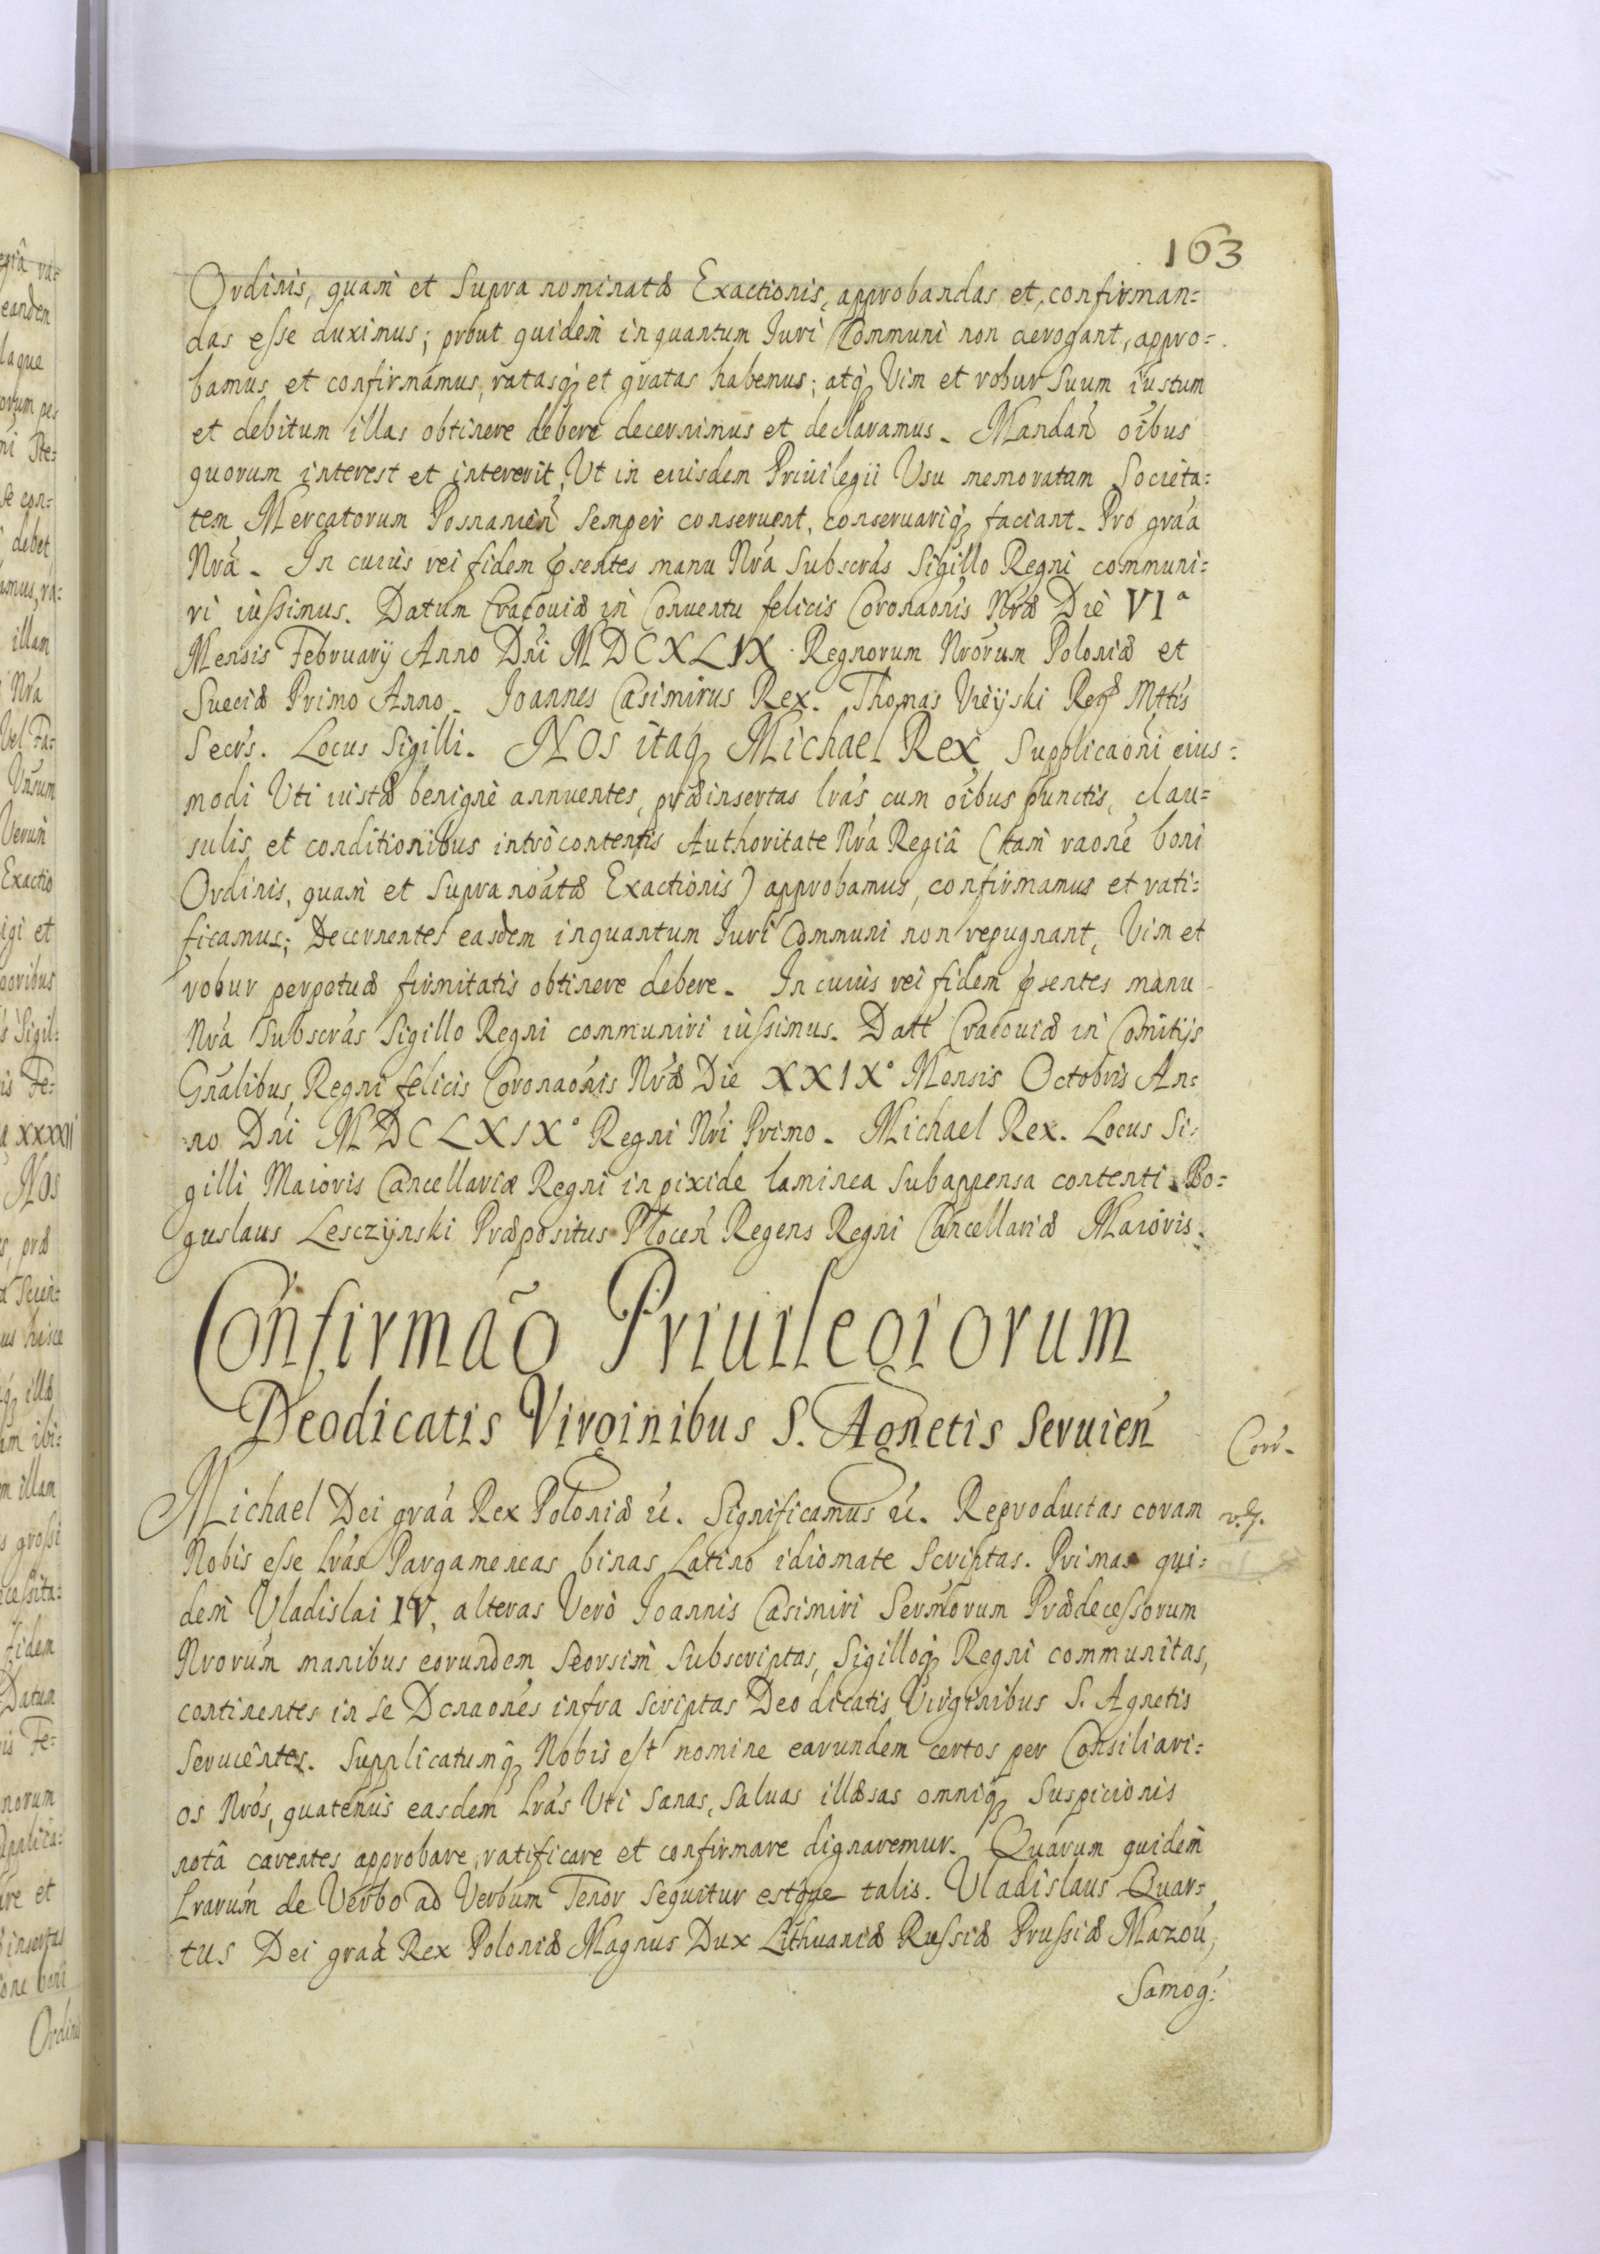 163
Ordinis, quam et Supra nominatæ Exactionis, approbandas et confirman=
das esse duximus; prout quidem inquantum Iuri Communi non derogant, appro=
bamus et confirmamus, ratasq₃ et gratas habemus; atq₃ Vim et robur Suum iustum
et debitum illas obtinere debere decernimus et declaramus. Mandań oíbus
quorum interest et intererit, Ut in eiusdem Priuilegii Usu memoratam Societa=
tem Mercatorum Posnanień Semper conseruent, conseruariq₃ faciant. Pro graá
Nrá. In cuius rei fidem pśentes manu Nrá Subscrás Sigillo Regni communi=
ri iussimus. Datum Cracouiæ in Conuentu felicis Coronaónis Nræ Die VIª
Mensis February Anno Dńi MDCXLIX. Regnorum Nrórum Poloniæ et
Sueciæ Primo Anno. Joannes Casimirus Rex. Thomas Vieyski Regæ Mttís
Secrs. Locus Sigilli. NOS itaq₃ Michael Rex Supplicaóni eius=
modi Uti iustæ benignè annuentes, præinsertas lrás cum oíbus punctis, clau=
sulis et conditionibus introcontentis Authoritate Nrá Regiâ (tam raoné boni
Ordinis, quam et Supra noátæ Exactionis) approbamus, confirmamus et rati=
ficamus; Decernentes easdem inquantum Iuri Communi non repugnant, Vim et
robur perpetuæ firmitatis obtinere debere. In cuius rei fidem pśentes manu
Nrá Subscrás Sigillo Regni communiri iussimus. Datt Cracouiæ in Comitijs
Gńalibus Regni felicis Coronaónis Nræ Die XXIXº Mensis Octobris An=
no Dńi MDCLXIXº Regni Nri Primo. Michael Rex. Locus Si=
gilli Maioris Cancellariæ Regni in pixide laminea Subappensa contenti. Bo=
guslaus Lesczynski Præpositus Plocen̄ Regens Regni Cancellariæ Maioris.
Confirmaõ Priuilegiorum
Deodicatis Virginibus S. Agnetis Seruień
Corr.
Michael Dei graá Rex Poloniæ &. Significamus &. Reproductas coram
Nobis esse lrás Pargameneas binas Latino idiomate Scriptas. Primas qui=
dem Vladislai IV, alteras Verò Joannis Casimiri Sermórum Prædecessorum
Nrorúm manibus eorundem Seorsim Subscriptas, Sigilloq₃ Regni communitas,
continentes in se Dońaonés infra scriptas Deodicatis Virginibus S. Agnetis
Seruientes. Supplicatumq₃ Nobis est nomine earundem certos per Consiliari=
os Nrós, quatenus easdem lrás Uti Sanas, Saluas illæsas omniq₃ Suspicionis
notâ carentes approbare, ratificare et confirmare dignaremur. Quarum quidem
Lrarúm de Verbo ad Verbum Tenor Sequitur estque talis. Vladislaus Quar=
tus Dei graá Rex Poloniæ Magnus Dux Lithuaniæ Russiæ Prussiæ Mazoú,
Samog: